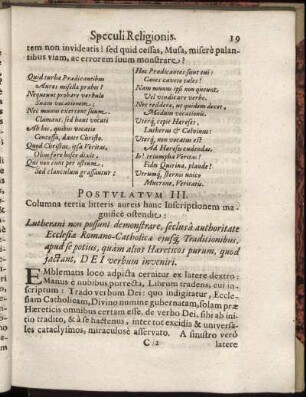 Speculi Religionis. 19
tem non invideatis! sed quid cessas, Musa, miserè palan-
tibus viam, ac errorem suum monstrare?
Quid turba Prædicantibus
Aures misella præbet?
Nequeunt probare verbulo
Suam vocationem;
Nec munus exercent suum,
Clamant, sed haut vocati
Ab his, quibus vocatio
Concessa, dante Christo.
Quod Christus, ipsa Veritas,
Olim fore hisce dixit,
Qui vos ante per ostium,
Sed clanculum grassantur:
Hoc Prædicantes sunt tui:
Canes cavete tales!
Nam munus ipsi non queunt
Vel vendicare verbo.
Nec reddere, ut quidem decet,
Modum vocationis.
Uterq; cœpit Hæreses,
Lutherus & Calvinus:
Utérq; non vocatus est
Ad Hæreses cudendas.
Io! triumpha Veritas!
Fides Quirina, plaude!
Utrumq; sterni vides
Mucrone, Veritatis.
POSTULATUM III.
Columna tertia litteris aureis hanc Inscriptionem ma-
gnificè ostendit:
Lutherani non possunt demonstrare, seclusâ authoritate
Ecclesiæ Romano-Catholicæ ejusq; Traditionibus,
apud se potius, quàm alios Hæreticos purum, quod
jactant, DEI verbum inveniri.
EMblematis loco adpicta cernitur ex latere dextro:
Manus è nubibus porrecta, Librum tradens, cui in-
scriptum: Trado verbum Dei: quo indigitatur, Eccle-
siam Catholicam, Divino numine gubernatam, solam præ
Hæreticis omnibus certam esse, de verbo Dei, sibi ab ini-
tio tradito, & à se hactenus, inter tot excidia & universa-
les cataclysmos, miraculosè asservato. A sinistro verò
C 2 latere